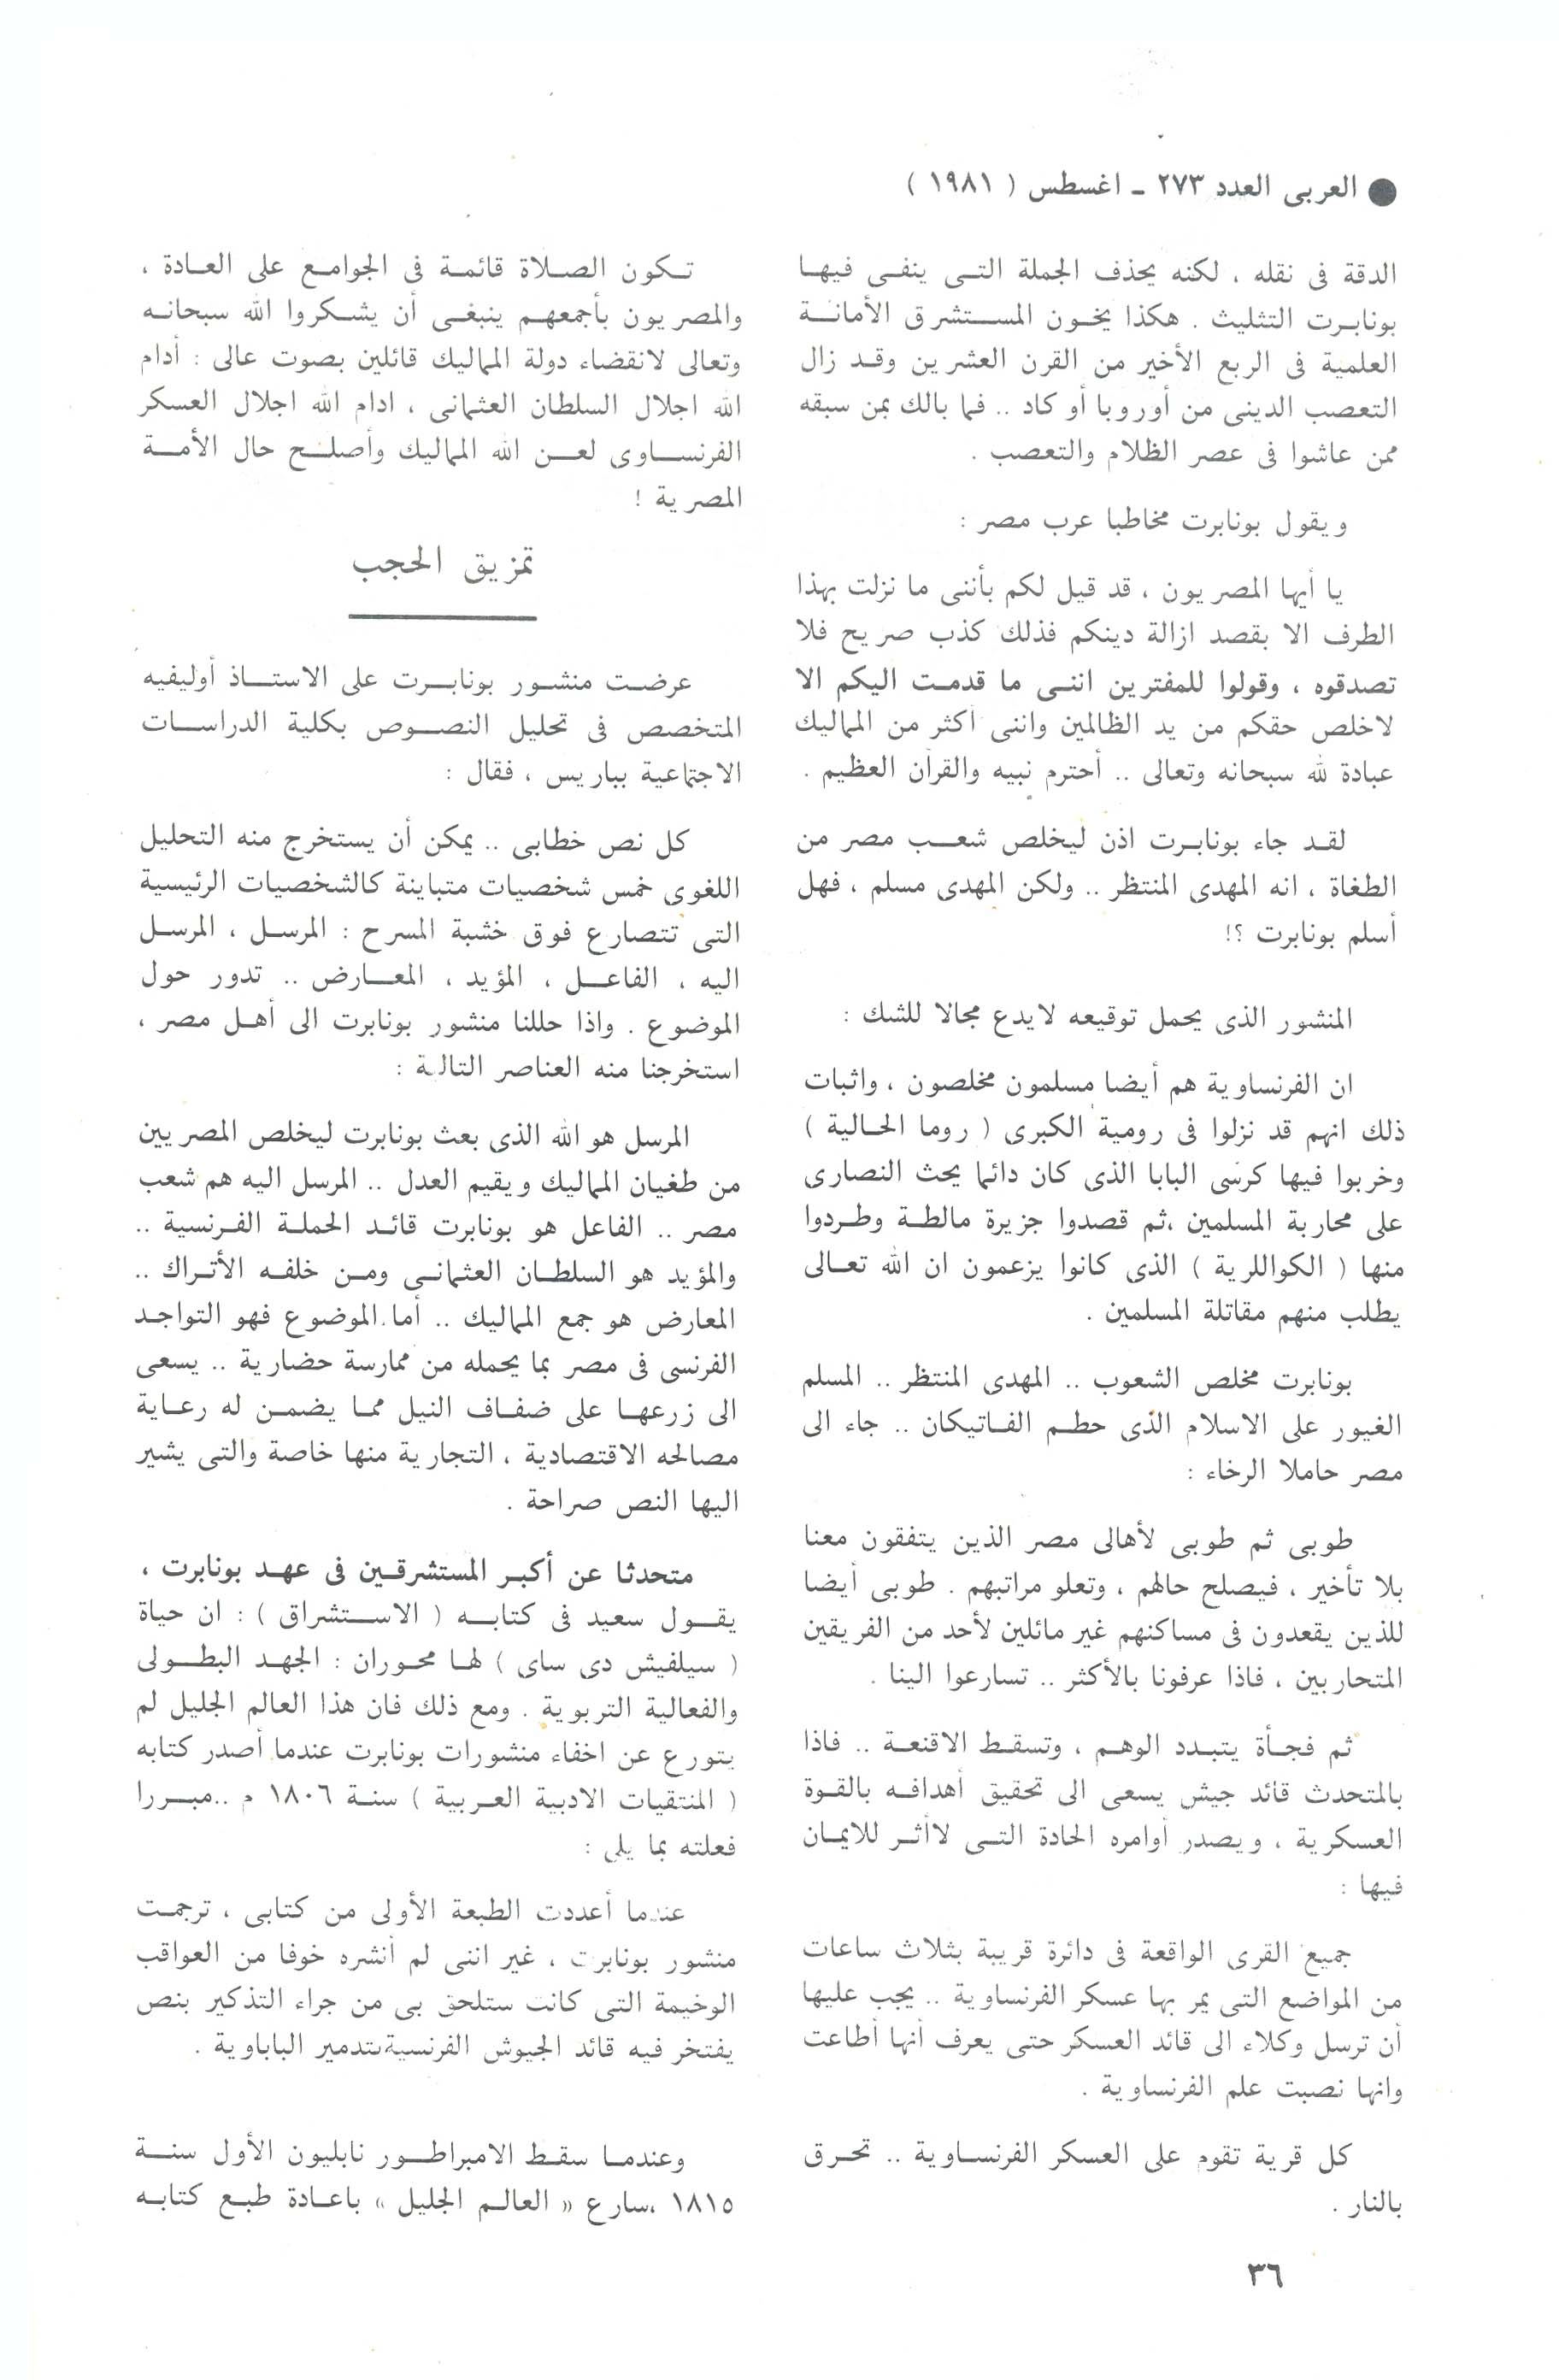 ● العربى العدد ٢٧٣ - اغسطس ( ١٩٨١ )
الدقة فى نقله ، لكنه يحذف الجملة التى ينفى فيها
بونابرت التثليث . هكذا يخون المستشرق الأمانة
العلمية فى الربع الأخير من القرن العشرين وقد زال
التعصب الدينى من أوروبا أو كاد .. فما بالك بمن سبقه
ممن عاشوا فى عصر الظلام والتعصب .
ويقول بونابرت مخاطبا عرب مصر :
يا أيها المصريون ، قد قيل لكم بأننى ما نزلت بهذا
الطرف الا بقصد ازالة دينكم فذلك كذب صريح فلا
تصدقوه ، وقولوا للمفترين اننى ما قدمت اليكم الا
لاخلص حقكم من يد الظالمين واننى أكثر من المماليك
عبادة لله سبحانه وتعالى .. أحترم نبيه والقرآن العظيم .
لقد جاء بونابرت اذن ليخلص شعب مصر من
الطغاة ، انه المهدى المنتظر .. ولكن المهدى مسلم ، فهل
أسلم بونابرت ؟!
المنشور الذى يحمل توقيعه لايدع مجالا للشك :
ان الفرنساوية هم أيضا مسلمون مخلصون ، واثبات
ذلك انهم قد نزلوا فى رومية الكبرى ( روما الحالية )
وخربوا فيها كرسى البابا الذى كان دائما يحث النصارى
على محاربة المسلمين ،ثم قصدوا جزيرة مالطة وطردوا
منها ( الكواللرية ) الذى كانوا يزعمون ان الله تعالى
يطلب منهم مقاتلة المسلمين .
بونابرت مخلص الشعوب .. المهدى المنتظر .. المسلم
الغيور على الاسلام الذى حطم الفاتيكان .. جاء الى
مصر حاملا الرخاء :
طوبى ثم طوبى لأهالى مصر الذين يتفقون معنا
بلا تأخير ، فيصلح حالهم ، وتعلو مراتبهم . طوبى أيضا
للذين يقعدون فى مساكنهم غير مائلين لأحد من الفريقين
المتحاربين ، فاذا عرفونا بالأكثر .. تسارعوا الينا .
ثم فجأة يتبدد الوهم ، وتسقط الاقنعة .. فاذا
بالمتحدث قائد جيش يسعى الى تحقيق أهدافه بالقوة
العسكرية ، ويصدر أوامره الحادة التى لاأثر للايمان
فيها :
جميع القرى الواقعة فى دائرة قريبة بثلاث ساعات
من المواضع التى يمر بها عسكر الفرنساوية .. يجب عليها
أن ترسل وكلاء الى قائد العسكر حتى يعرف أنها أطاعت
وانها نصبت علم الفرنساوية .
كل قرية تقوم على العسكر الفرنساوية .. تحرق
بالنار .
تكون الصلاة قائمة فى الجوامع على العادة ،
والمصريون بأجمعهم ينبغى أن يشكروا الله سبحانه
وتعالى لانقضاء دولة المماليك قائلين بصوت عالى : أدام
الله اجلال السلطان العثمانى ، ادام الله اجلال العسكر
الفرنساوى لعن الله المماليك وأصلح حال الأمة
المصرية !
تمزيق الحجب
عرضت منشور بونابرت على الاستاذ أوليفيه
المتخصص فى تحليل النصوص بكلية الدراسات
الاجتماعية بباريس ، فقال :
كل نص خطابى .. يمكن أن يستخرج منه التحليل
اللغوى خمس شخصيات متباينة كالشخصيات الرئيسية
التى تتصارع فوق خشبة المسرح : المرسل ، المرسل
اليه ، الفاعل ، المؤيد ، المعارض .. تدور حول
الموضوع . واذا حللنا منشور بونابرت الى أهل مصر ،
استخرجنا منه العناصر التالية :
المرسل هو الله الذى بعث بونابرت ليخلص المصريين
من طغيان المماليك ويقيم العدل .. المرسل اليه هم شعب
مصر .. الفاعل هو بونابرت قائد الحملة الفرنسية ..
والمؤيد هو السلطان العثمانى ومن خلفه الأتراك ..
المعارض هو جمع المماليك .. أما الموضوع فهو التواجد
الفرنسى فى مصر بما يحمله من ممارسة حضارية .. يسعى
الى زرعها على ضفاف النيل مما يضمن له رعاية
مصالحه الاقتصادية ، التجارية منها خاصة والتى يشير
اليها النص صراحة .
متحدثا عن أكبر المستشرقين فى عهد بونابرت ،
يقول سعيد فى كتابه ( الاستشراق ) : ان حياة
( سيلفيش دى ساى ) لها محوران : الجهد البطولى
والفعالية التربوية . ومع ذلك فان هذا العالم الجليل لم
يتورع عن اخفاء منشورات بونابرت عندما أصدر كتابه
( المنتقيات الادبية العربية ) سنة ١٨٠٦ م ..مبررا
فعلته بما يلى :
عندما أعددت الطبعة الأولى من كتابى ، ترجمت
منشور بونابرت ، غير اننى لم أنشره خوفا من العواقب
الوخيمة التى كانت ستلحق بى من جراء التذكير بنص
يفتخر فيه قائد الجيوش الفرنسية بتدمير الباباوية .
وعندما سقط الامبراطور نابليون الأول سنة
١٨١٥ ،سارع « العالم الجليل » باعادة طبع كتابه
٣٦